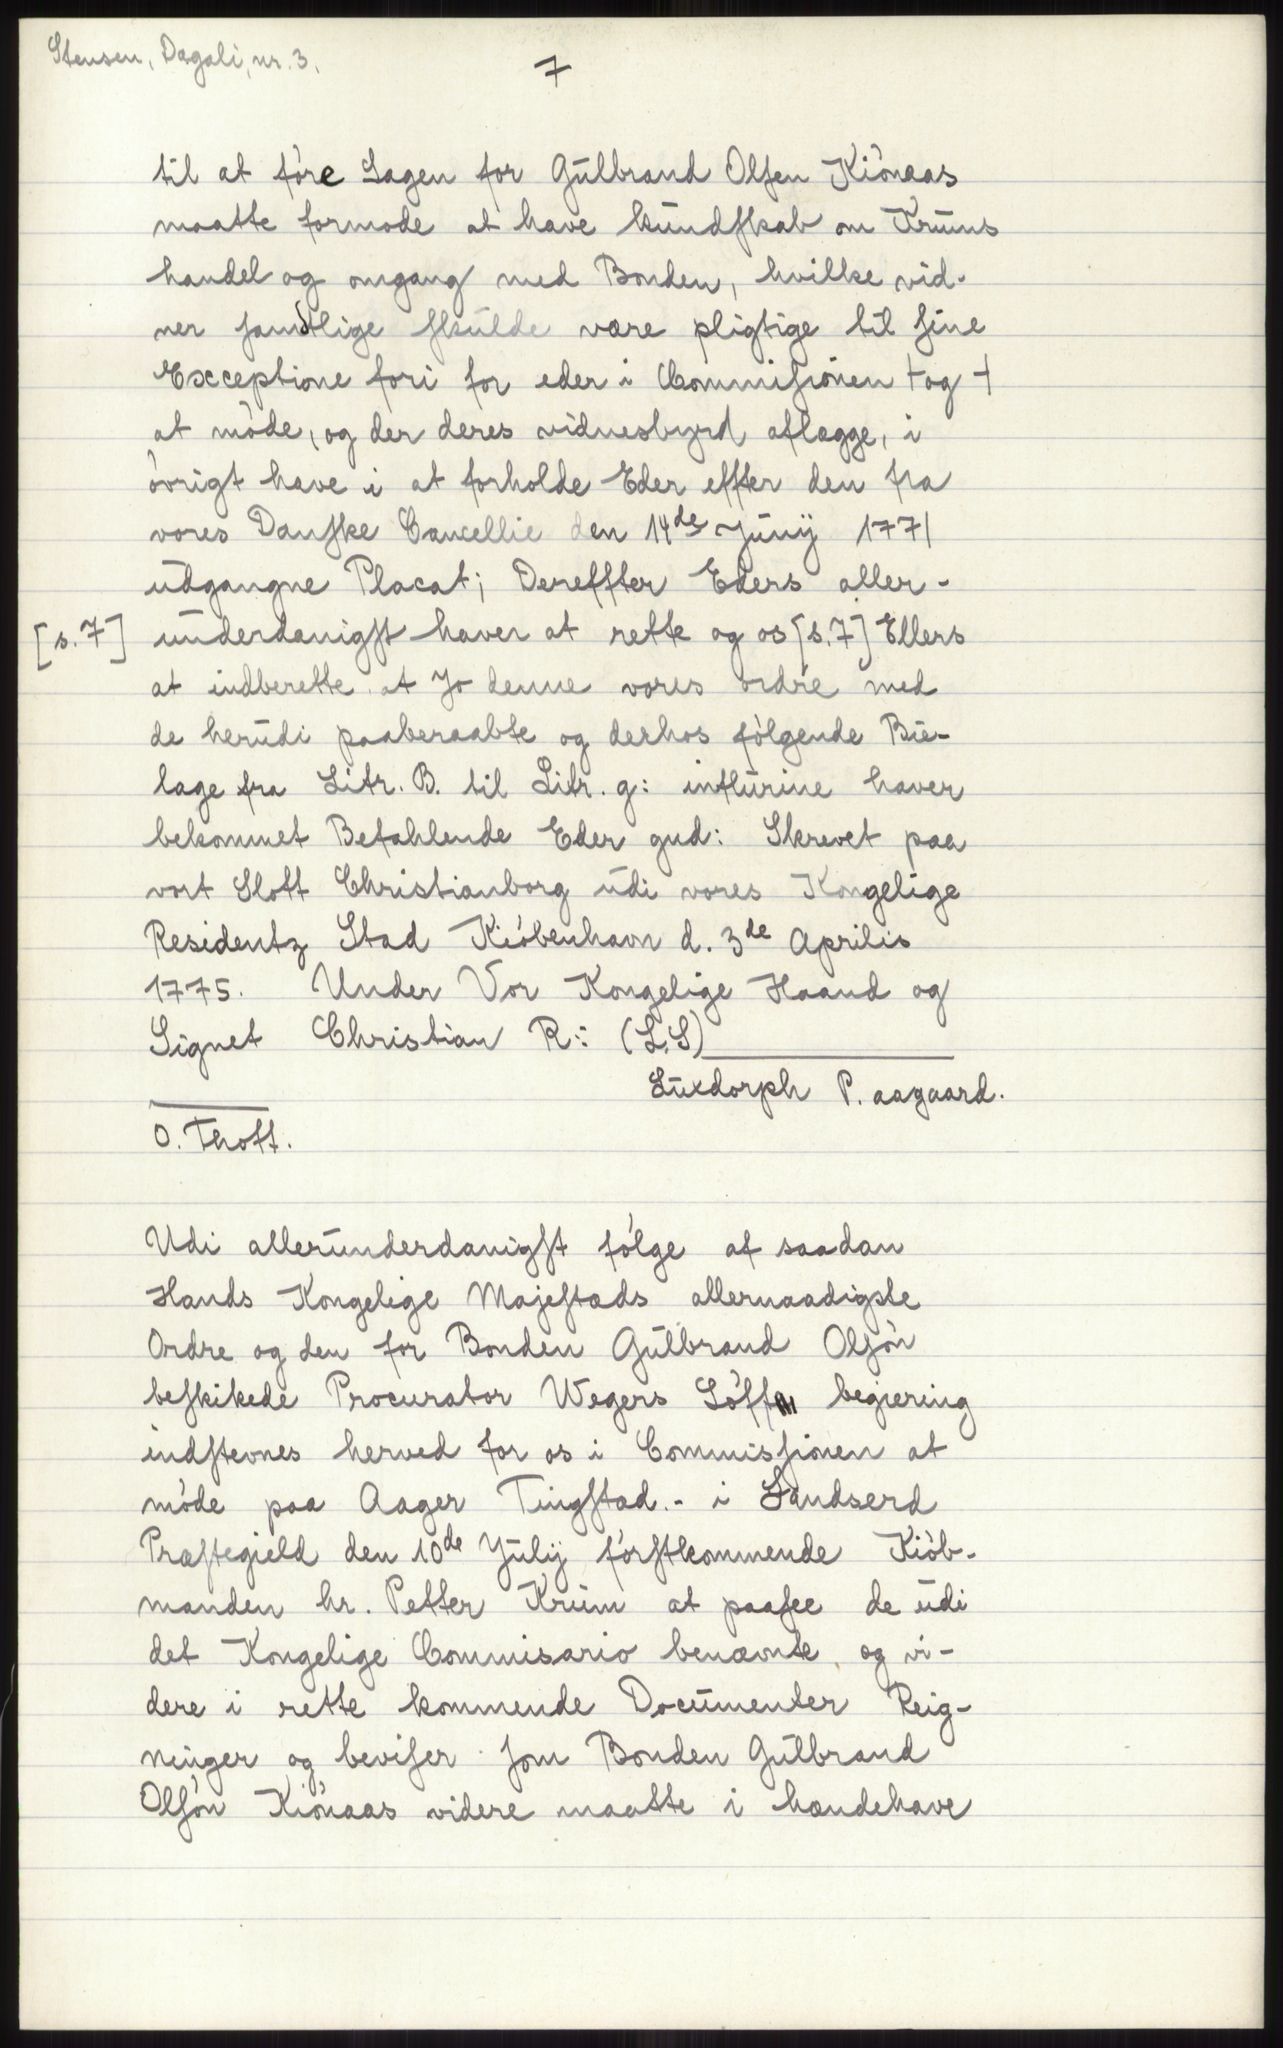 Stensen, Dagali, nr. 3.
7
til at føre Sagen for Gulbrand Olsen Kiönaas
maatte formode at have kundskab om Krums
handel og omgang med Bonden, hvilke vid-
ner samdtlige skulde være pligtige til sine
Excceptione fori for eder i Commisionen + og +
at möde, og der deres vidnesbyrd aflægge, i
övrigt have i at forholde Eder effter den fra
vores Danske Cancellie den 14de Junÿ 1771
udgangne Placat; Dereffter Eders aller-
[s. 7] underdanigst haver at rette og os [s. 7] Ellers
at indberette at Jo denne vores ordre med
de herudi paaberaabte og derhos følgende Bie-
lage fra Litr. B. til Litr. g: inslurine haver
bekommet Befahlende Eder gud: Skrevet paa
vort Slott Christianborg udi vores Kongelige
Residentz Stad Kiöbenhavn d. 3de Aprilis
1775. Under Vor Kongelige Haand og
Signet Christian R:: (L.S)
Luxdorph P. aagaard.
O. Thott.
Udi allerunderdanigst følge af saadan
Hands Kongelige Majestæds allernaadigste
Ordre og den for Bonden Gulbrand Olsön
beskikede Procurator Wegers begiering
indstevnes herved for os i Commissionen at
möde paa Aager Tingstad.- i Sandserd
Præstegield den 10de Julÿ förstkommende Kiöb-
manden hr. Petter Krum at paasee de udi
det Kongelige Commisario benævnte og vi-
dere i rette kommende Documenter Reig-
ninger og beviser som Bonden Gulbrand
Olsön Kiönaas videre maatte i hændehave